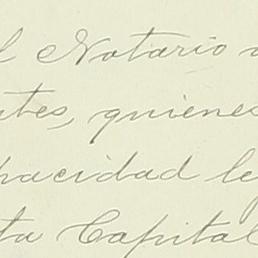 l Notario a
ntes, quienes
pacidad le
ta Capital